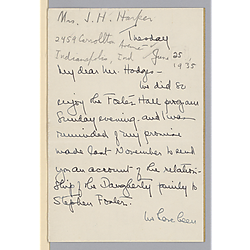 Mrs. J. H. Harper
2959 Carrollton Avenue -
Tuesday
Indianapolis, Ind June 25
1935
My dear Mr. Hodges -
We did so
enjoy the Foster Hall program
Sunday evening - and I was
reminded of my promise
made last November to send
you an account of the relation-
ship of the Daugherty family to
Stephen Foster.
We have been